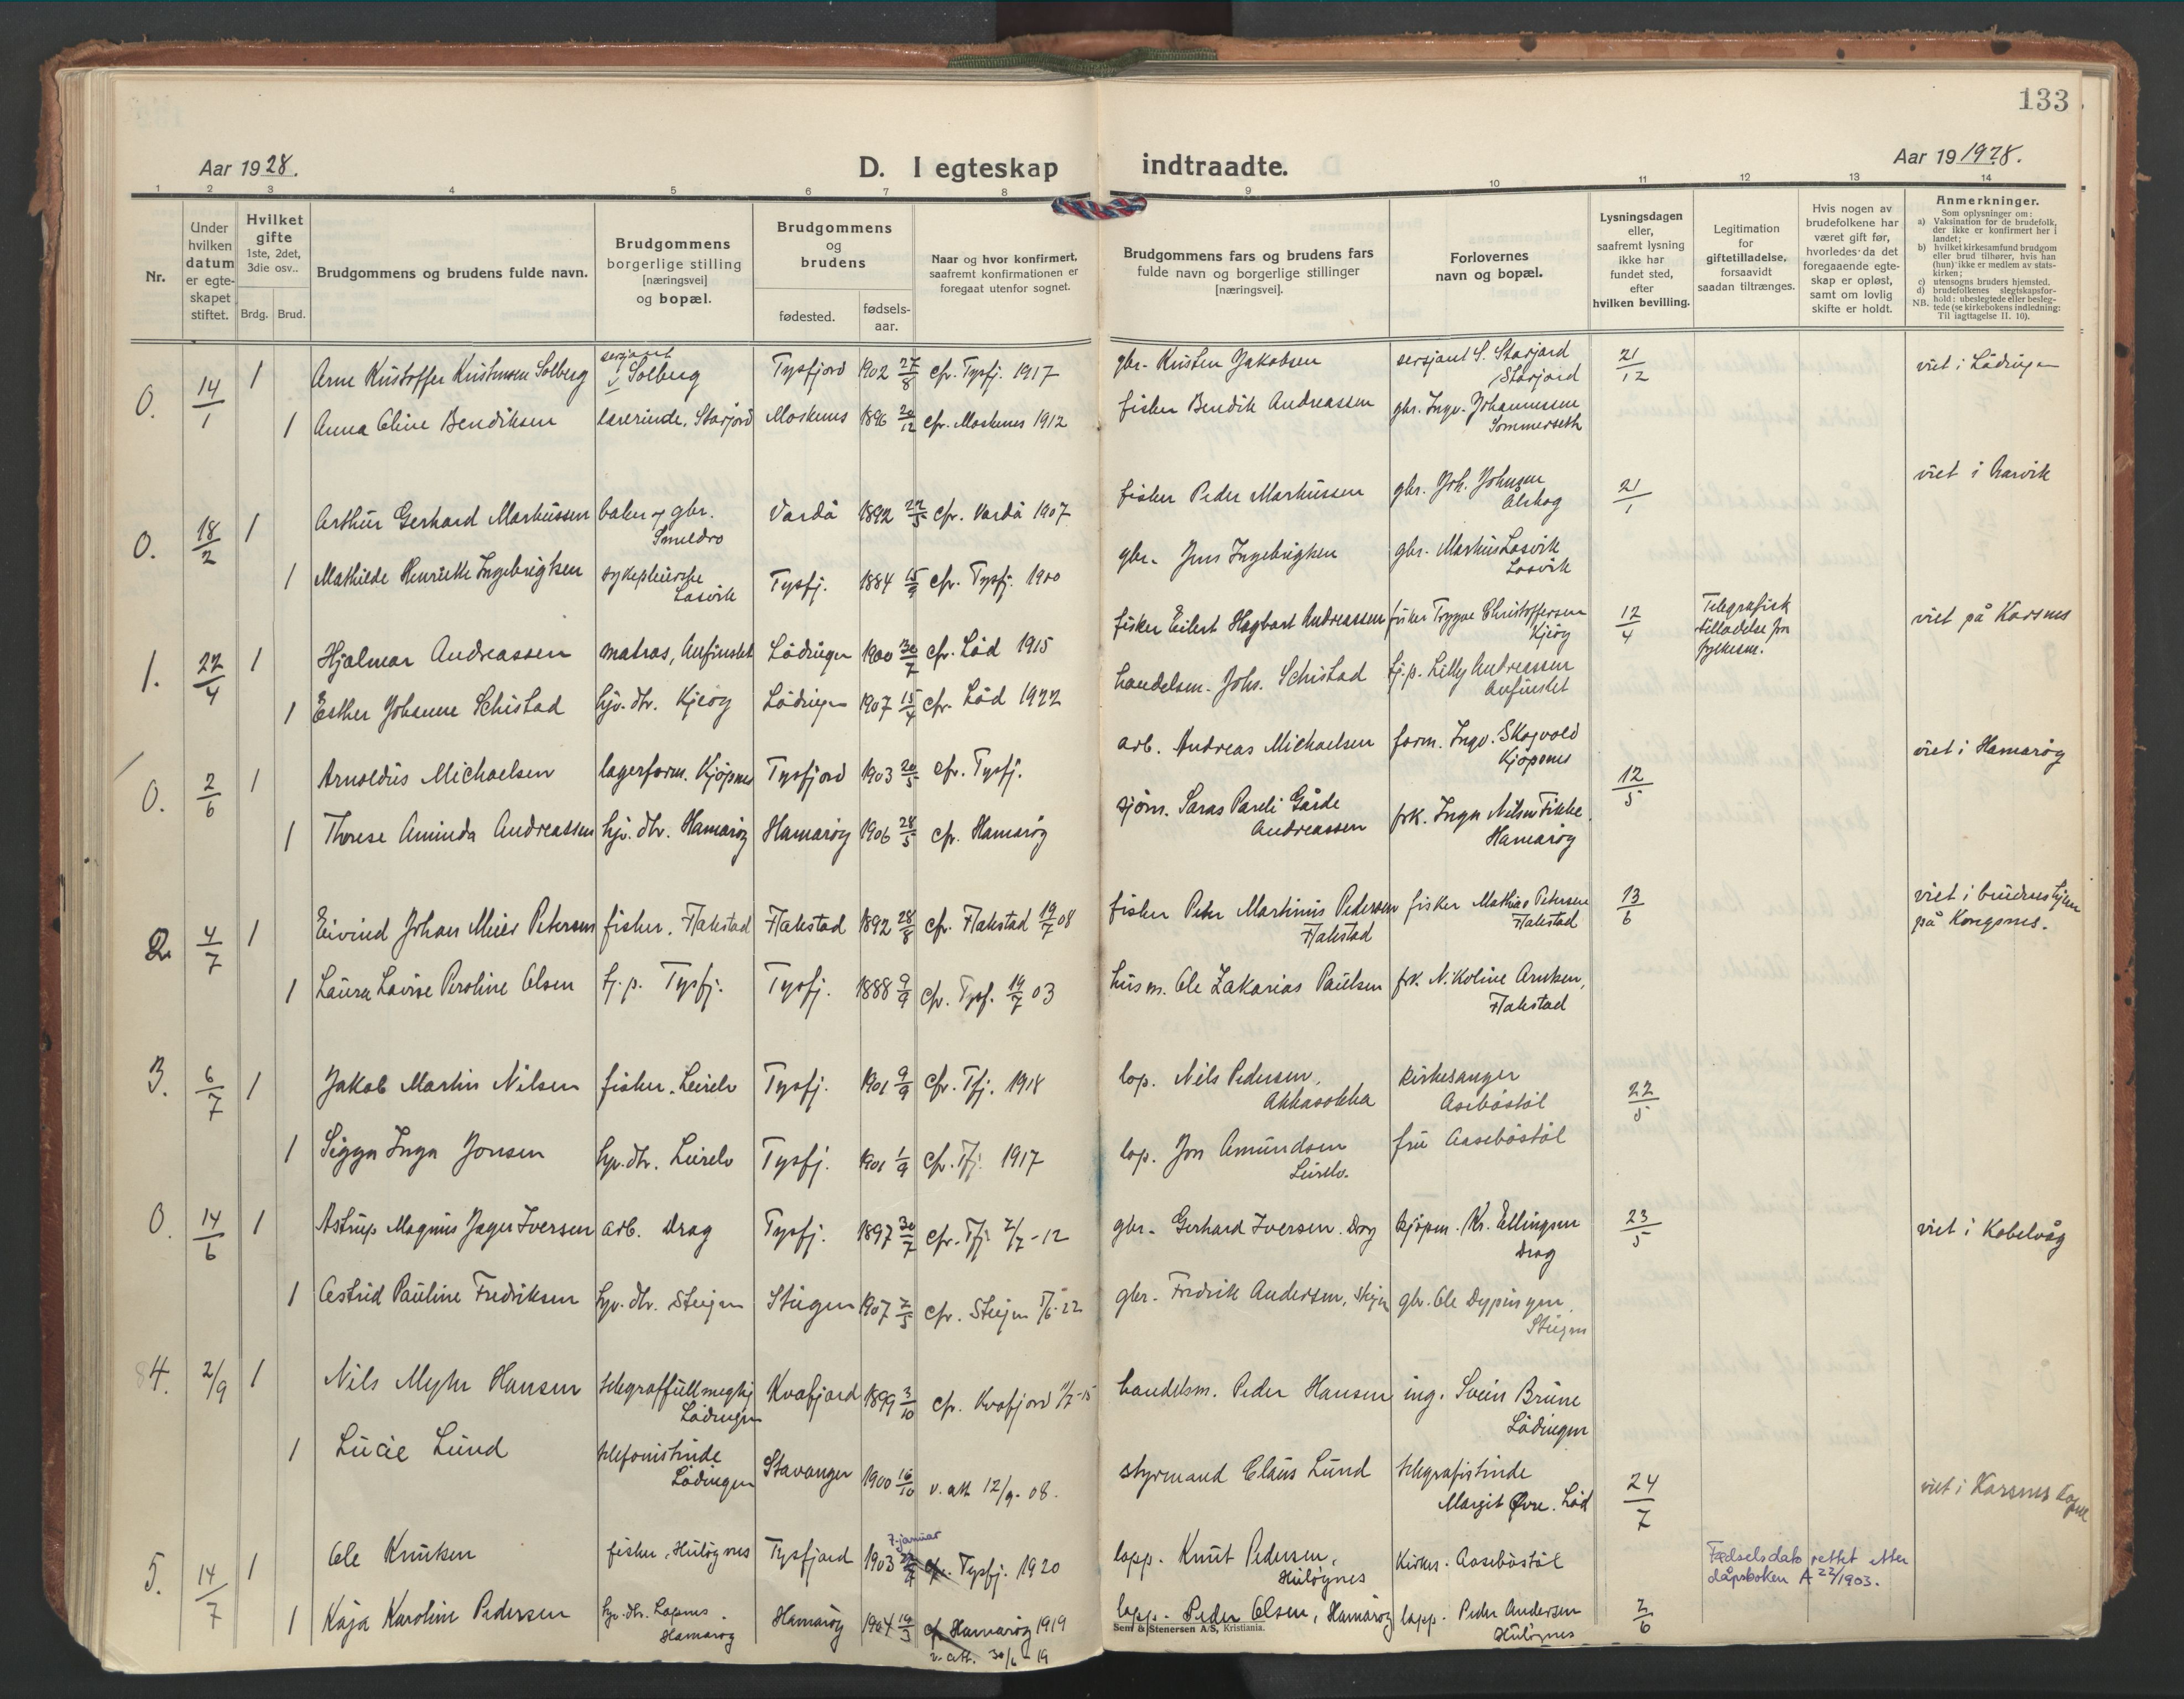 133
Aar 1928.
D. I egteskap indtraadte.
Aar 19 1928.
1 2 3 4 5 6 7 8 9 10 11 12 13 14
Nr.
Under hvilken datum er egteskapet stiftet.
Hvilket gifte 1ste, 2det, 3die osv..
Brdg. Brud.
Brudgommens og brudens fulde navn.
Brudgommens borgerlige stilling [næringsvei] og bopæl.
Brudgommens og brudens
fødested.
fødselsaar.
Naar og hvor konfirmert, saafremt konfirmationen er foregaat utenfor sognet.
Brudgommens fars og brudens fars fulde navn og borgerlige stillinger [næringsvei].
Forlovernes navn og bopæl.
Lysningsdagen eller, saafremt lysning ikke har fundet sted, efter hvilken bevilling.
Legitimation for giftetilladelse, forsaavidt saadan tiltrænges.
Hvis nogen av brudefolkene har været gift før, hvorledes da det foregaaende egteskap er opløst, samt om lovlig skifte er holdt.
Anmerkninger.
Som oplysninger om:
a) Vaksination for de brudefolk, der ikke er konfirmert her i landet;
b) hvilket kirkesamfund brudgom eller brud tilhører, hvis han (hun) ikke er medlem av statskirken;
c) utensogns bruders hjemsted.
d) brudefolkenes slegtskapsforhold: ubeslegtede eller beslegtede (se kirkebokens indledning:
NB. Til iagttagelse II. 10).
0. 14/1 1 Arne Kristoffer Kristensen Solberg sersjant Solberg Tysfjord 1902 27/8 cfr. Tysfj. 1917 gbr. Kristen Jakobsen sersjant S. Storjord Storjord 21/12 viet i Lødingen
1 Anna Oline Bendiksen lærerinde, Storjord Moskenes 1896 20/12 cfr. Moskenes 1912 fisker Bendik Andreassen gbr. Ingv. Johannessen Sommerseth
0. 18/2 1 Arthur Gerhard Markussen baker og gbr. Vardø 1892 22/5 cfr. Vardø 1907 fisker Peder Markussen gbr. Joh. Johnsen 21/1 viet i Narvik
1 Mathilde Henriette Ingebrigtsen sykepleierske Losvik Tysfj. 1884 15/9 cfr. Tysfj. 1900 gbr. Jens Ingebrigtsen gbr. Markus Losvik Losvik
1. 22/4 1 Hjalmar Andreassen matros, Anfinslet Lødingen 1900 30/7 cfr. Lød 1915 fisker Eilert Hagbart Andreassen fisker Trygve Christoffersen Kjeøy 12/4 Telegrafisk tilladelse fra fylkesm. viet på Korsnes
1 Esther Johanne Schistad hjv. dtr. Kjeøy Lødingen 1907 15/4 cfr. Lød 1922 handelsm. Johs. Schistad tj. p. Lilly Andreassen Anfinslet
0. 2/6 1 Arnoldus Michaelsen lagerform. Kjøpsnes Tysfjord 1903 20/5 cfr. Tysfj. arb. Andreas Michaelsen form. Ingv. Skogvold Kjøpsnes 12/5 viet i Hamarøy
1 Therese Aminda Andreassen hjv. dtr. Hamarøy Hamarøy 1906 28/5 cfr. Hamarøy sjøm. Andreassen frk. Inga Nilsen Hamarøy
2. 4/7 1 Eivind Johan Meier Petersen fisker, Flakstad Flakstad 1892 28/8 cfr. Flakstad 19/7 08 fisker Peter Martinus Pedersen Flakstad fisker Mathias Petersen Flakstad 13/6 viet i brudens hjem på Kongsnes.
1 Laura Lovise Peroline Olsen tj. p. Tysfj. Tysfj. 1888 9/9 cfr. Tysf. 19/7 03 husm. Ole Zakarias Paulsen frk. Nikoline Arntsen, Flakstad
3. 6/7 1 Jakob Martin Nilsen fisker, Leirelv Tysfj. 1901 9/9 cfr. Tfj. 1918 lap. Nils Pedersen, kirkesanger Aasebøstøl 22/5
1 Sigga Inga Jonsen hjv. dtr. Leirelv Tysfj. 1901 1/9 cfr. Tfj. 1917 lap. Jon Amundsen Leirelv. fru Aasebøstøl
0. 14/6 1 Astrup Magnus Jager Iversen arb. Drag Tysfj. 1897 30/7 cfr. Tfj. 2/7-12 gbr. Gerhard Iversen. Drag kjøpm. Kr. Ellingsen Drag 23/5 viet i Kabelvåg
1 Astrid Pauline Fredriksen hjv. dtr. Steigen Steigen 1907 2/5 cfr. Steigen gbr. Fredrik Andersen, Steigen gbr. Ole Dypingen, Steigen
4. 2/9 1 Nils Myhr Hansen telegraffullmegtig Lødingen Kvæfjord 1899 3/10 cfr. Kvæfjord 11/7-15 handelsm. Peder Hansen ing. Svein Brune Lødingen
1 Lucie Lund telefonistinde Lødingen Stavanger 1900 16/10 v. att. 12/9-08. styrmand Claus Lund telegrafistinde Margit Øvre. Lød 24/7 viet i Korsnes kapel
5. 14/7 1 Ole Knutsen fisker, Huløynes Tysfjord 1903 7. januar cfr. Tysfj. 1920 lapp. Knut Pedersen, Huløynes Kirkes. Aasebøstøl Fødselsdato rettet etter dåpsboken A 22/1903.
1 Kaja Karoline Pedersen hjv. dtr. Lapnes. Hamarøy Hamarøy 1904 19/3 cfr. Hamarøy 1919 v. att. 30/6-19 lapp. Peder Olsen, Hamarøy lapp. Peder Andersen Huløynes 2/6
Sem & Stenersen A/S, Kristiania.